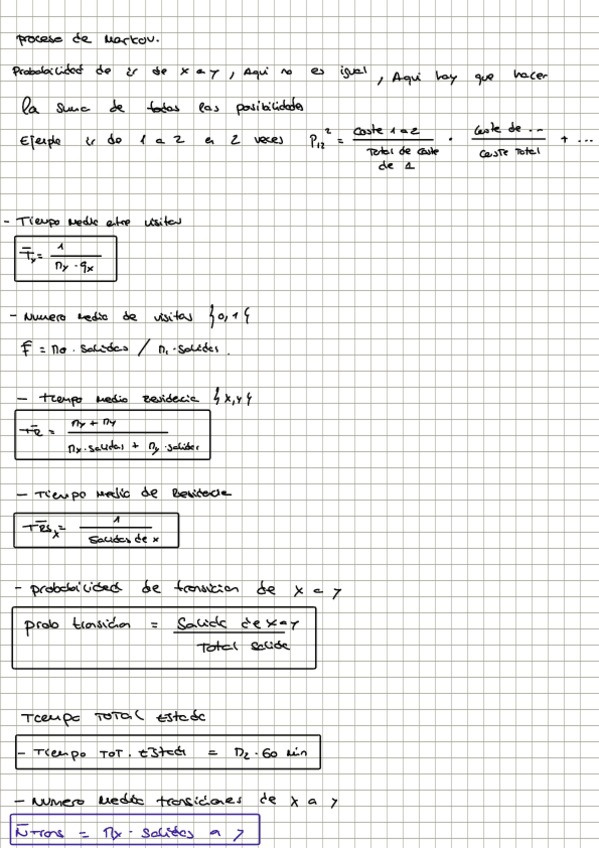 proceso de Markov.
Probabilidad de ir de x a y, Aqui no es igual, Aqui hay que hacer
la suma de todas las posibilidades
Ejemplo ir de 1 a 2 en 2 veces P₁₂² = Coste 1 a 2 / Total de coste de 1 · Coste de ... / Coste Total + ...
- Tiempo medio entre visitas
T̄x = 1 / πy · qx
- Numero medio de visitas {0,1}
F = π0 · salidas / π1 · salidas.
- tiempo medio residencia {x,y}
T̄R = πx + πy / πx · salidas + πy · salidas
- Tiempo medio de Residencia
T̄Rsx = 1 / salidas de x
- probabilidad de transicion de x a y
prob transicion = Salida de x a y / Total salida
Tiempo TOTAL Estado
- Tiempo TOT. Estado = π2 · 60 min
- Numero medio transiciones de x a y
N̄trans = πx · salidas a y